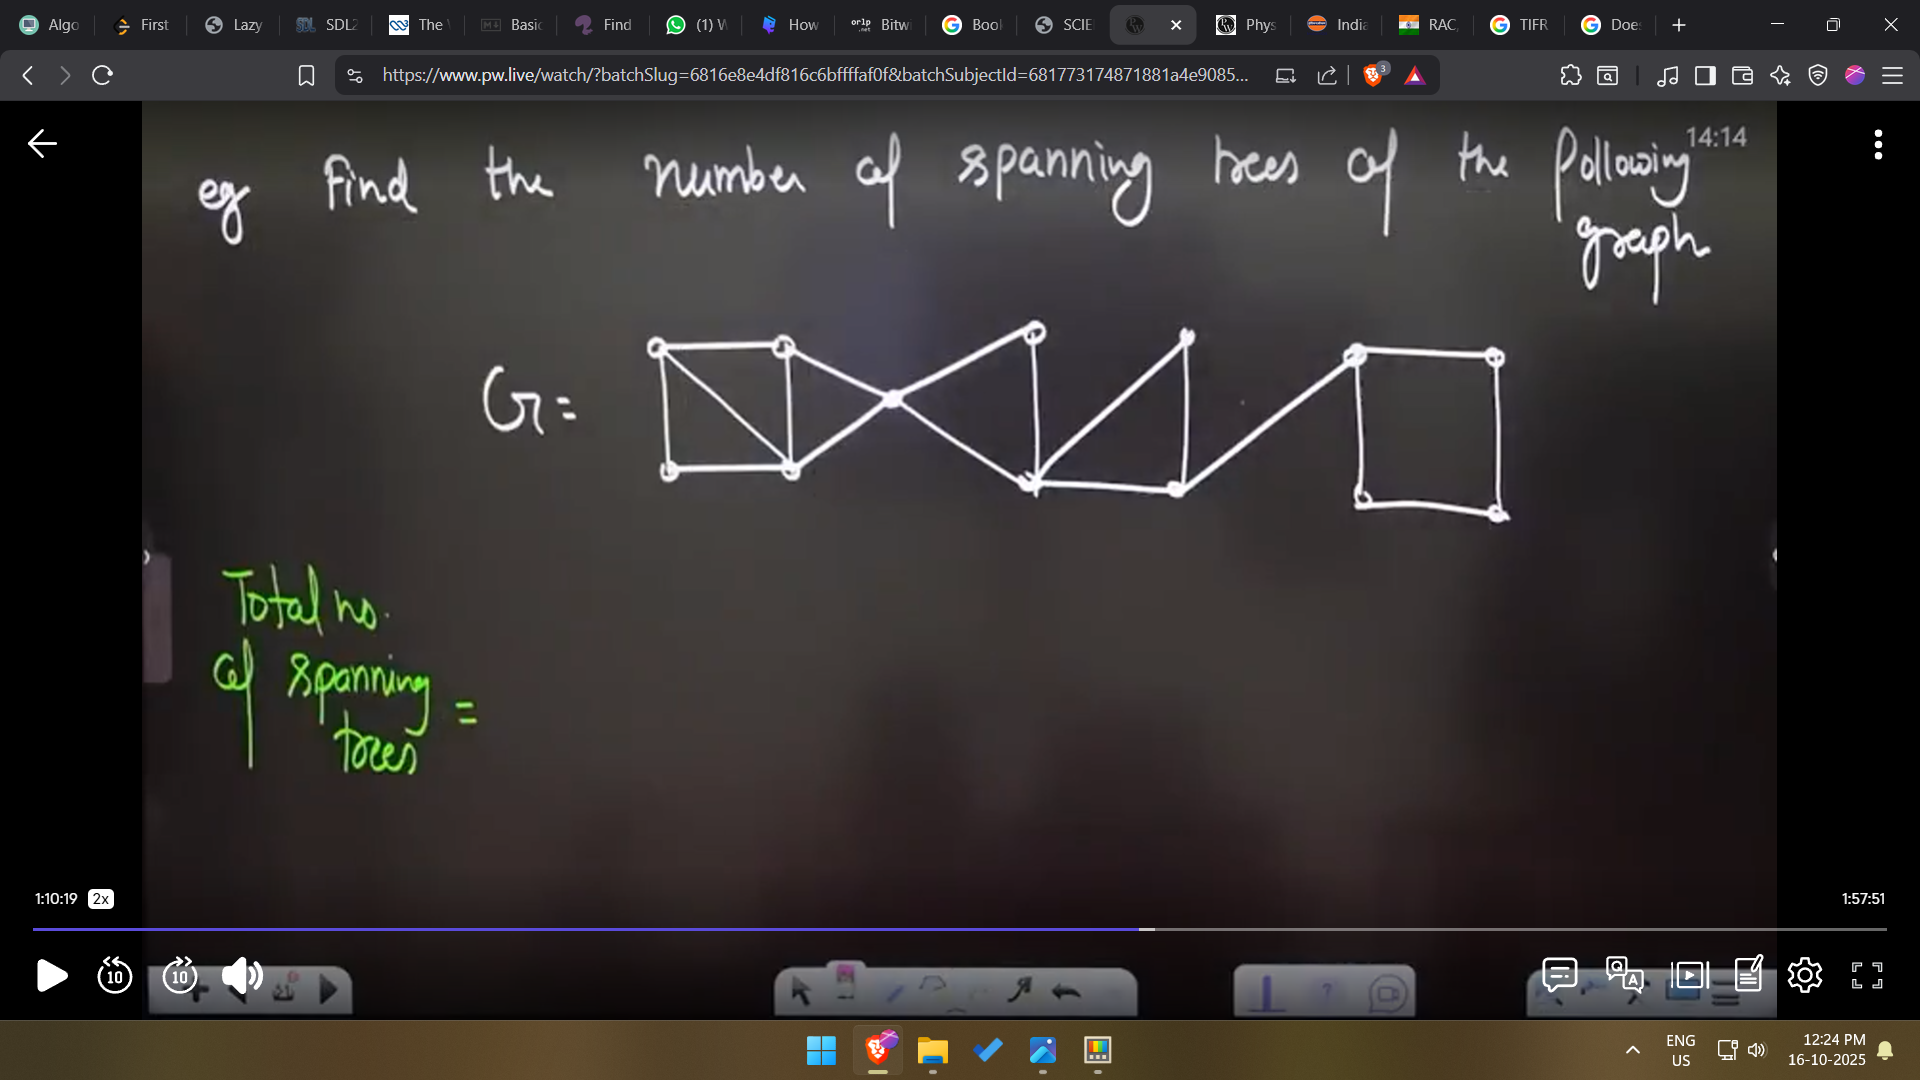 Algo
First
Lazy
SDL2
The
Basic
Find
(1) W
How
orlp .net
Bitwi
Book
SCIE
Phys
India
RAC,
TIFR
Does
https://www.pw.live/watch/?batchSlug=6816e8e4df816c6bffffaf0f&batchSubjectId=681773174871881a4e9085...
3
14:14
eg Find the number of spanning trees of the following
graph
G=
Total no.
of spanning =
trees
1:10:19 2x
1:57:51
10
10
ENG
US
12:24 PM
16-10-2025